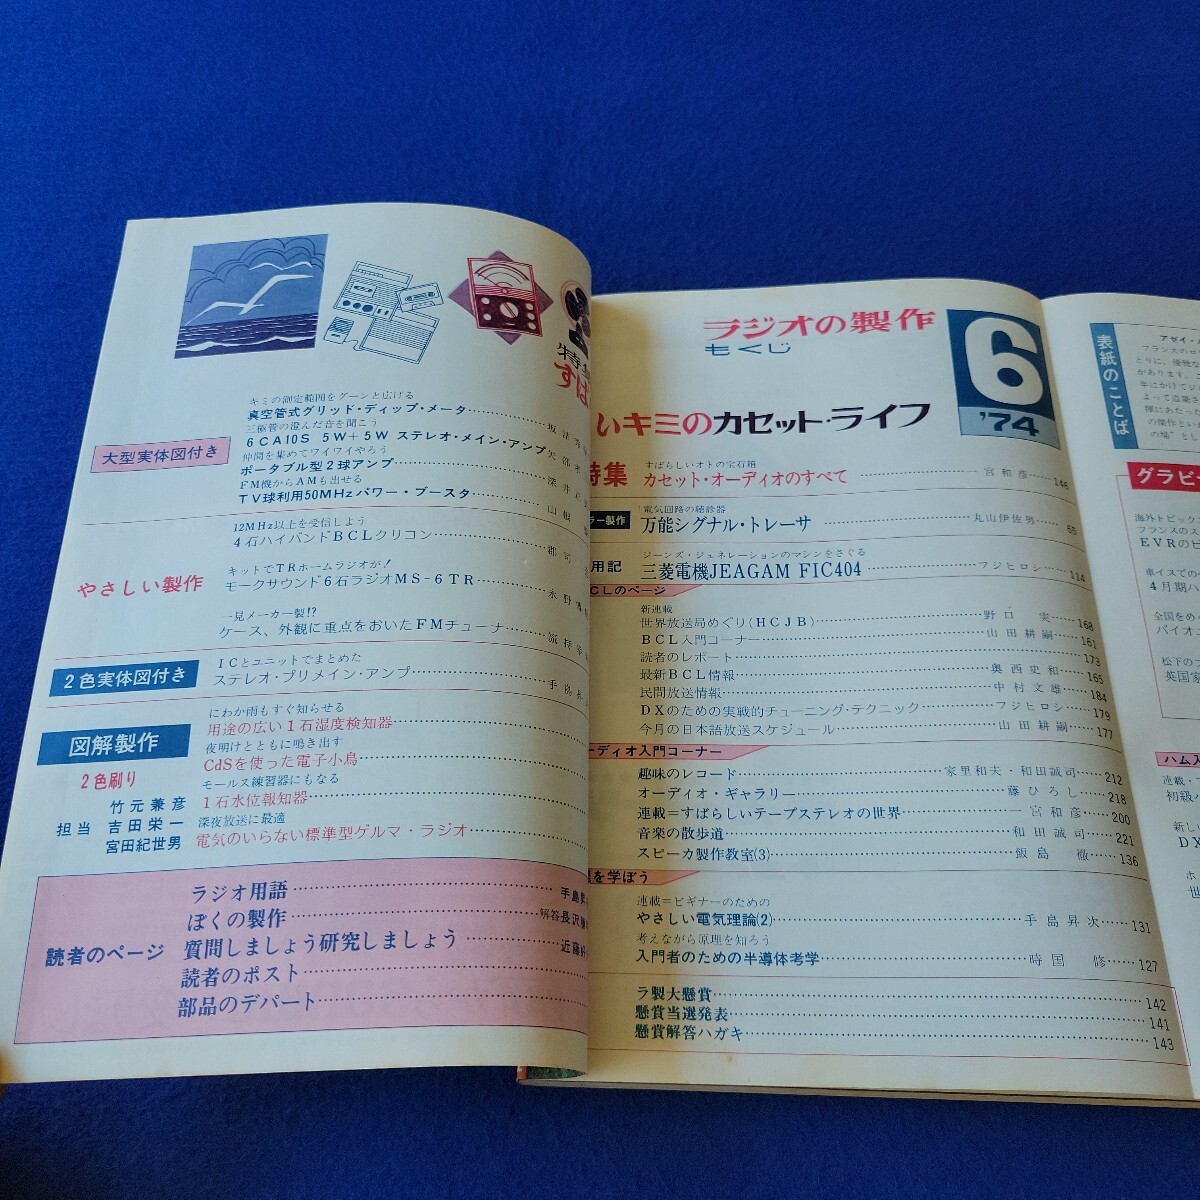 特集
すば
大型実体図付き
キミの測定範囲をグーンと広げる
真空管式グリッド・ディップ・メータ
三極管の澄んだ音を聞こう
6CA10S 5W+5W ステレオ・メイン・アンプ
仲間を集めてワイワイやろう
ポータブル型2球アンプ
FM機からAMも出せる
TV球利用50MHzパワー・ブースタ
やさしい製作
12MHz以上を受信しよう
4石ハイバンドBCLクリコン
キットでTRホームラジオが!
モークサウンド6石ラジオMS-6TR
一見メーカー製!?
ケース、外観に重点をおいたFMチューナ
2色実体図付き
ICとユニットでまとめた
ステレオ・プリメイン・アンプ
図解製作
2色刷り
担当
竹元兼彦
吉田栄一
宮田紀世男
にわか雨もすぐ知らせる
用途の広い1石湿度検知器
夜明けとともに鳴き出す
CdSを使った電子小鳥
モールス練習器にもなる
1石水位報知器
深夜放送に最適
電気のいらない標準型ゲルマ・ラジオ
読者のページ
ラジオ用語 手島昇
ぼくの製作 解答 長沢
質問しましょう研究しましょう 近藤
読者のポスト
部品のデパート
ラジオの製作
もくじ
6
'74
いキミのカセット・ライフ
特集
すばらしいオトの宝石箱
カセット・オーディオのすべて 宮和彦 146
ラー製作
電気回路の聴診器
万能シグナル・トレーサ 丸山伊佐男 66
用記
ジーンズ・ジェネレーションのマシンをさぐる
三菱電機JEAGAM FIC404 フジヒロシ 114
CLのページ
新連載
世界放送局めぐり(HCJB) 野口実 168
BCL入門コーナー 山田耕嗣 161
読者のレポート 173
最新BCL情報 奥西史和 165
民間放送情報 中村文雄 184
DXのための実戦的チューニング・テクニック フジヒロシ 179
今月の日本語放送スケジュール 山田耕嗣 177
ーディオ入門コーナー
趣味のレコード 家里和夫・和田誠司 212
オーディオ・ギャラリー 藤ひろし 218
連載=すばらしいテープステレオの世界 宮和彦 200
音楽の散歩道 和田誠司 221
スピーカ製作教室(3) 飯島徹 136
を学ぼう
連載=ビギナーのための
やさしい電気理論(2) 手島昇次 131
考えながら原理を知ろう
入門者のための半導体考学 時国修 127
ラ製大懸賞 142
懸賞当選発表 141
懸賞解答ハガキ 143
表紙のことば
グラビー
海外トピック
フランスのス
EVRのピ
車イスでの
4月期ハ
全国をめぐ
バイオ
松下のフ
英国家
ハム入
連載・
初級ハ
新しい
DX